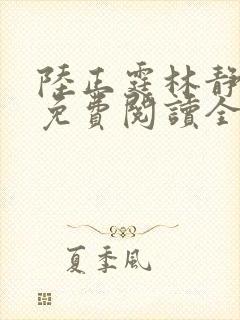 陸正霆林靜
免費閱讀全
夏季風